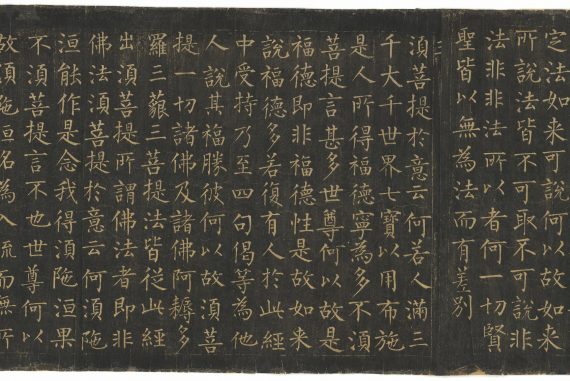 定法如来可說何以故如来
所說法皆不可取不可說非
法非非法所以者何一切賢
聖皆以無為法而有差別
湏菩提於意云何若人滿三
千大千世界七寶以用布施
是人所得福德寧為多不湏
菩提言甚多世尊何以故是
福德即非福德性是故如来
說福德多若復有人於此經
中受持乃至四句偈等為他
人說其福勝彼何以故湏菩
提一切諸佛及諸佛阿耨多
羅三藐三菩提法皆從此經
出湏菩提所謂佛法者即非
佛法湏菩提於意云何湏陁
洹能作是念我得湏陁洹果
不湏菩提言不也世尊何以
故湏陁洹名為入流而無所